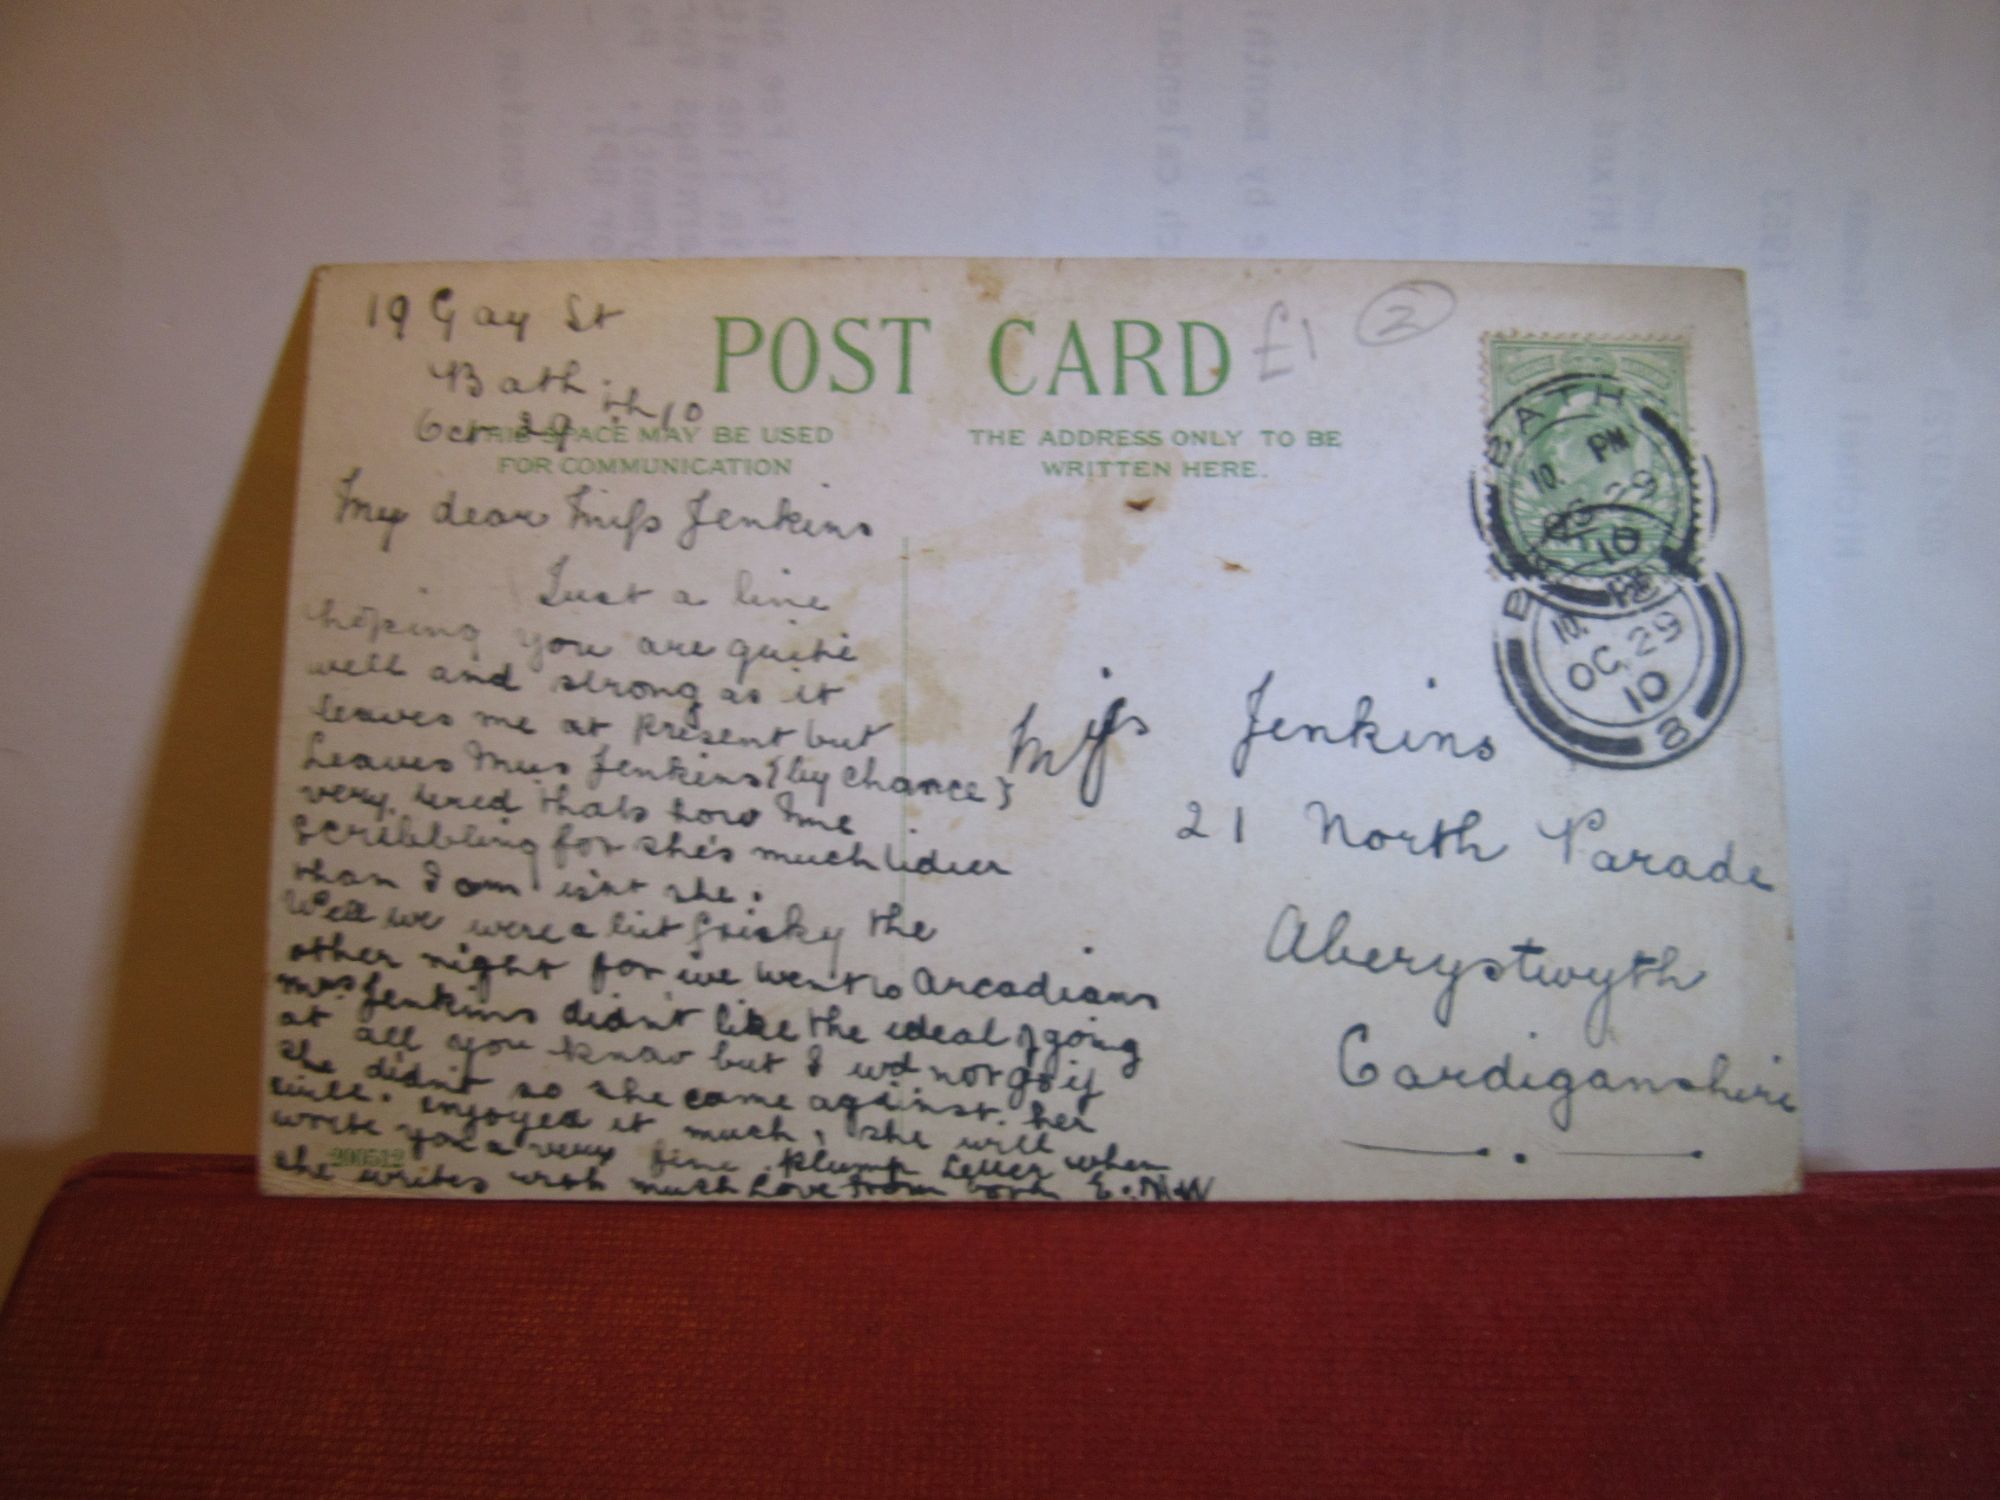 19 Gay St
Bath
Oct 29th 10
POST CARD
£1
2
THIS SPACE MAY BE USED
FOR COMMUNICATION
THE ADDRESS ONLY TO BE
WRITTEN HERE.
My dear Miss Jenkins
Just a line
hoping you are quite
well and strong as it
leaves me at present but
leaves Miss Jenkins (by chance)
very tired thats how I'me
scribbling for she's much tidier
than I am isnt she.
Well we were a bit frisky the
other night for we went to Arcadians
Miss Jenkins didn't like the ideal of going
at all you know but I wd not go if
she didn't so she came against her
will. enjoyed it much, she will
write you a very fine plump letter when
she writes with much love from both E.M.W
200512
Miss Jenkins
21 North Parade
Aberystwyth
Cardiganshire
BATH
10. PM
OC 29
10
B
10.
OC 29
10
8